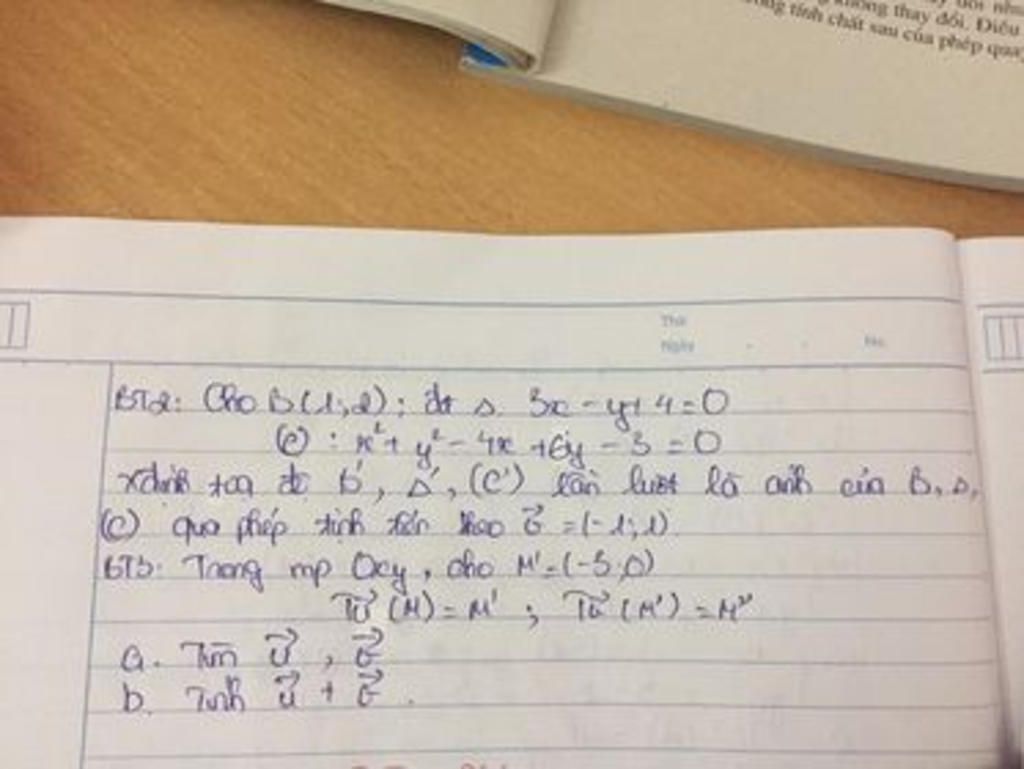 ay đổi như
g không thay đổi. Điều
ong tính chất sau của phép quay
Thứ
Ngày . . No.
BT2: Cho B(1;2); đt Δ 3x - y + 4 = 0
(C): x² + y² - 4x + 6y - 3 = 0
xđịnh tọa độ B', Δ', (C') lần lượt là ảnh của B, Δ,
(C) qua phép tịnh tiến theo v⃗ = (-1;1)
BT3: Trong mp Oxy, cho M' = (-3;0)
(M) = M' ; (M') = M''
a. Tìm u⃗, v⃗
b. Tính u⃗ + v⃗.